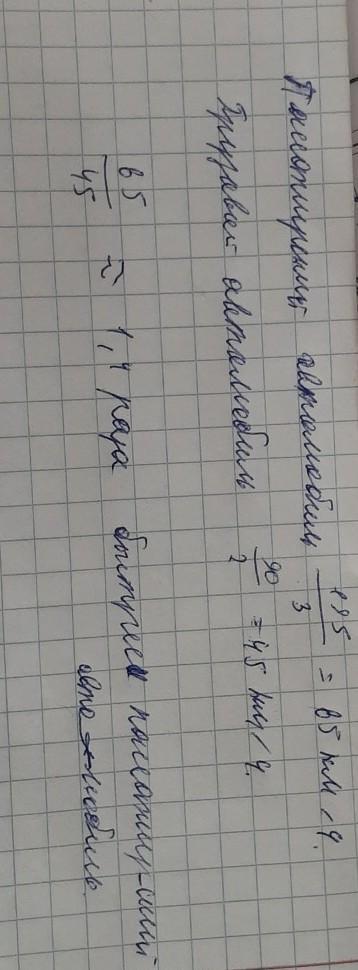 Пассажирский автомобиль 195/3 = 65 км/ч.
Грузовой автомобиль 90/2 = 45 км/ч.
65/45 ≈ 1,4 раза быстрее пассажирский
автомобиль.